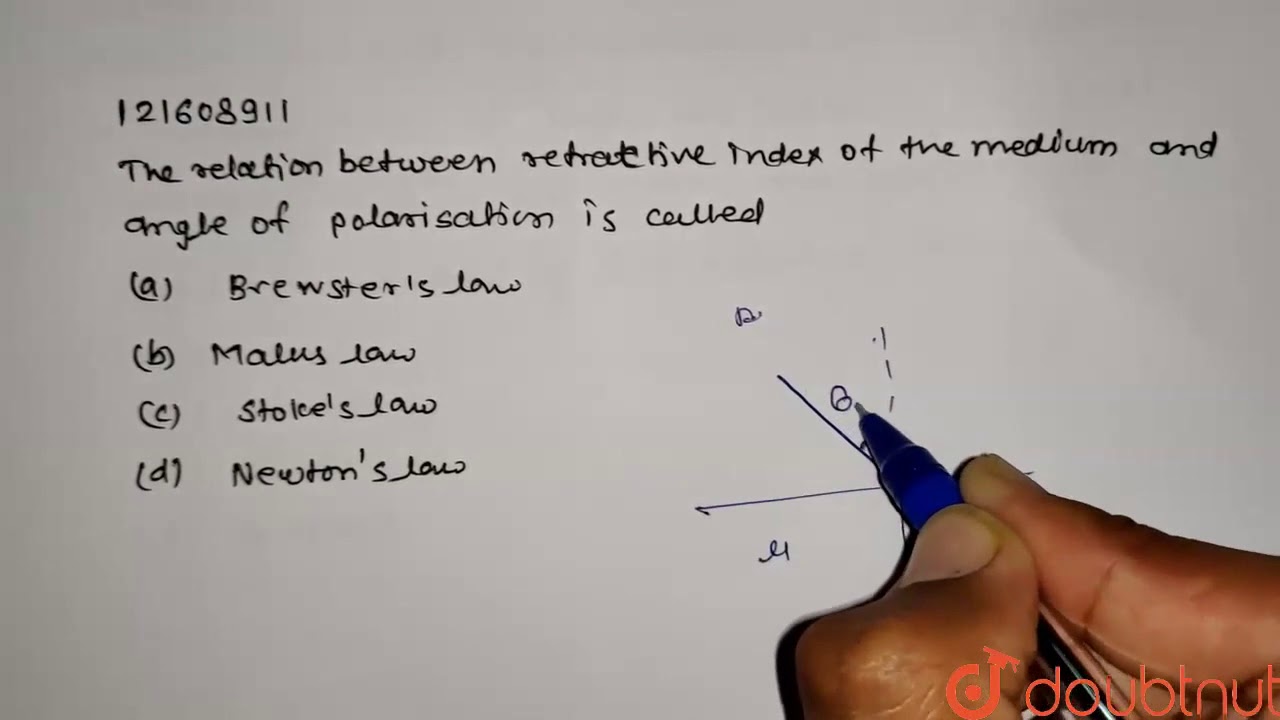 121608911
The relation between refractive index of the medium and
angle of polarisation is called
(a) Brewster's law
(b) Malus law
(c) Stoke's law
(d) Newton's law
θ
μ
doubtnut